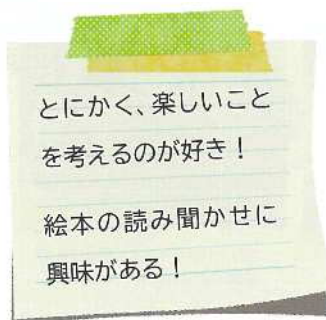 とにかく、楽しいこと
を考えるのが好き！
絵本の読み聞かせに
興味がある！